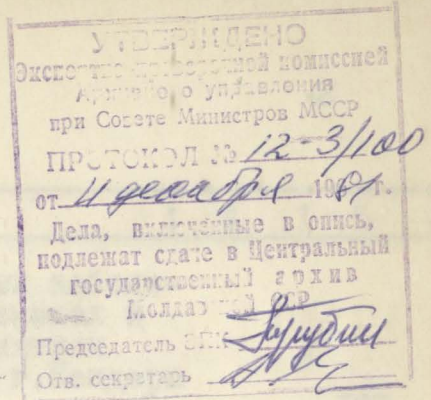 УТВЕРЖДЕНО
Экспертно-проверочной комиссией
Архивного управления
при Совете Министров МССР
ПРОТОКОЛ № 12-3/100
от 11 декабря 1981 г.
Дела, включённые в опись,
подлежат сдаче в Центральный
государственный архив
Молдавской ССР
Председатель ЭПК
Отв. секретарь